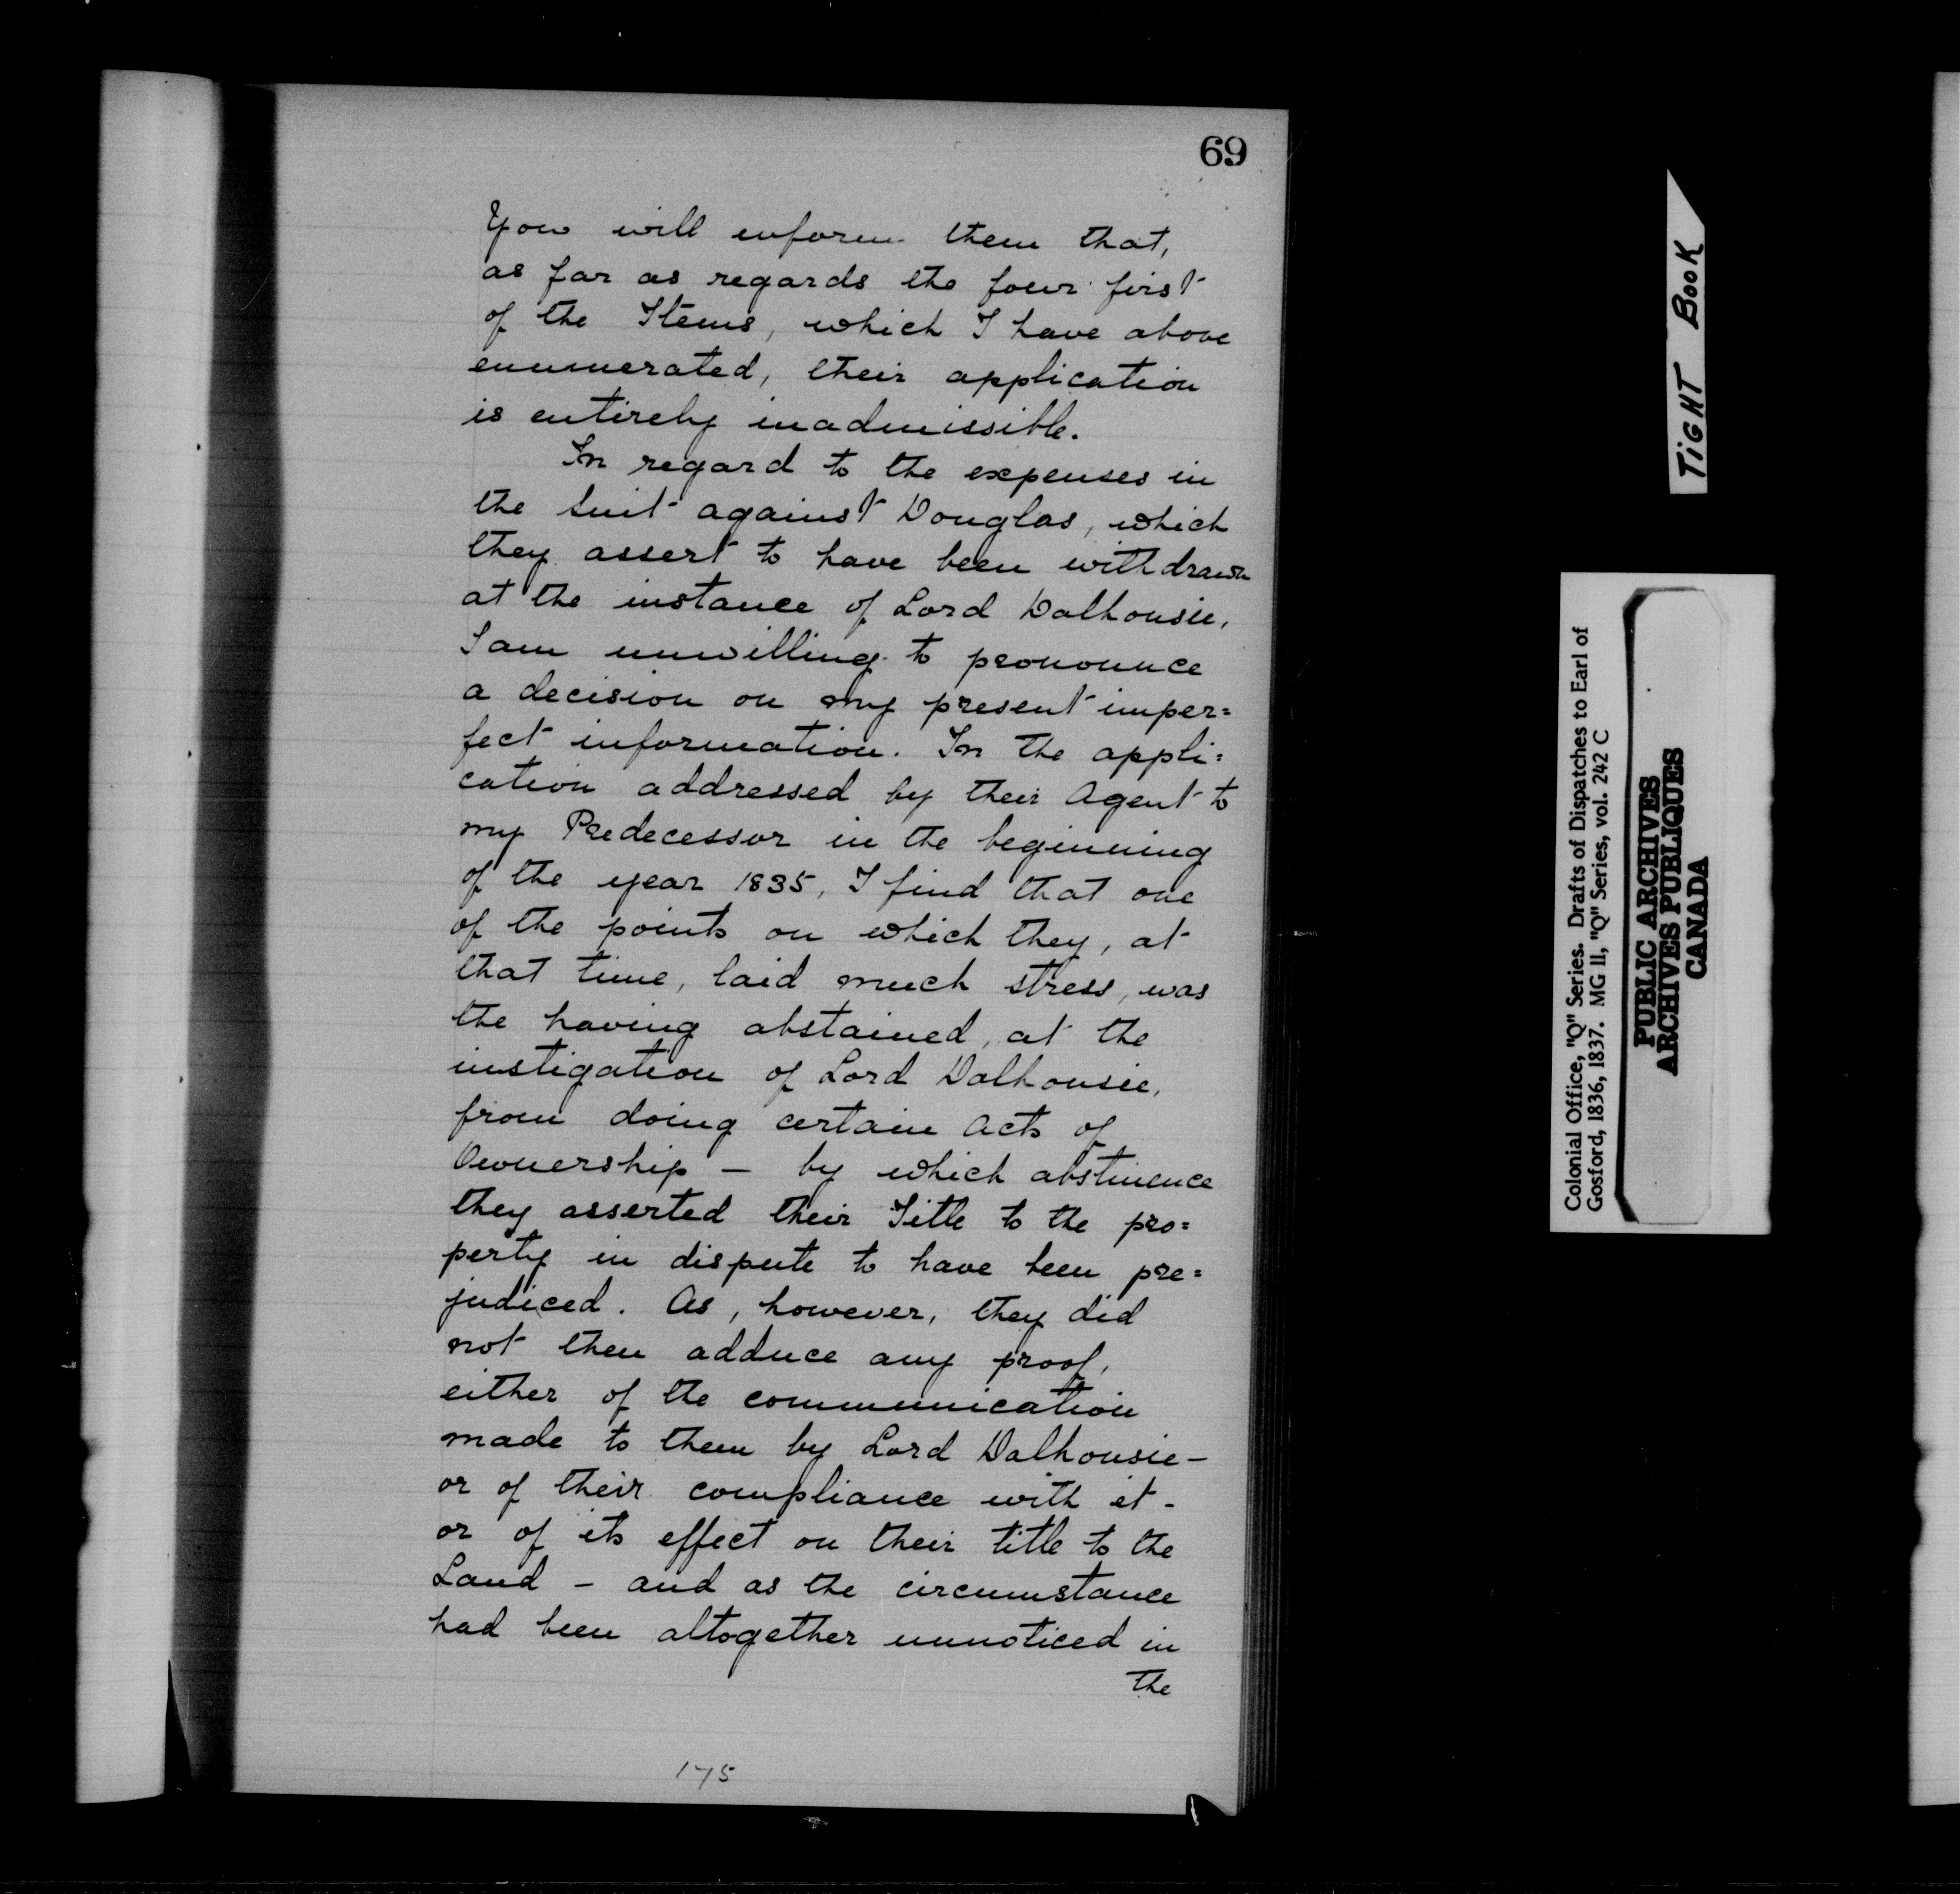 69
You will inform them that,
as far as regards the four first
of the Items, which I have above
enumerated, their application
is entirely inadmissible.
In regard to the expenses in
the Suit against Douglas, which
they assert to have been withdrawn
at the instance of Lord Dalhousie,
I am unwilling to pronounce
a decision on my present imper=
fect information. In the appli=
cation addressed by their Agent to
my Predecessor in the beginning
of the year 1835, I find that one
of the points on which they, at
that time, laid much stress, was
the having abstained, at the
instigation of Lord Dalhousie,
from doing certain Acts of
Ownership - by which abstinence
they asserted their Title to the pro=
perty in dispute to have been pre=
judiced. As, however, they did
not then adduce any proof,
either of the communication
made to them by Lord Dalhousie -
or of their compliance with it -
or of its effect on their title to the
Land - and as the circumstance
had been altogether unnoticed in
the
175
TIGHT BOOK
Colonial Office, "Q" Series. Drafts of Dispatches to Earl of
Gosford, 1836, 1837. MG 11, "Q" Series, vol. 242 C
PUBLIC ARCHIVES
ARCHIVES PUBLIQUES
CANADA